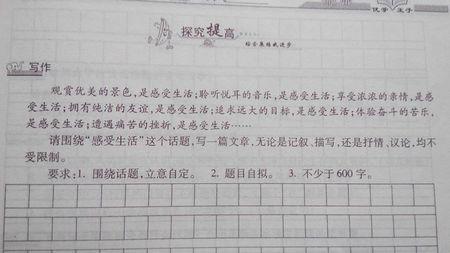 优学 王子
探究提高
综合集结成进步
写作
观赏优美的景色,是感受生活;聆听悦耳的音乐,是感受生活;享受浓浓的亲情,是感
受生活;拥有纯洁的友谊,是感受生活;追求远大的目标,是感受生活;体验奋斗的苦乐,
是感受生活;遭遇痛苦的挫折,是感受生活……
请围绕“感受生活”这个话题,写一篇文章,无论是记叙、描写,还是抒情、议论,均不
受限制。
要求:1. 围绕话题,立意自定。 2. 题目自拟。 3. 不少于 600 字。